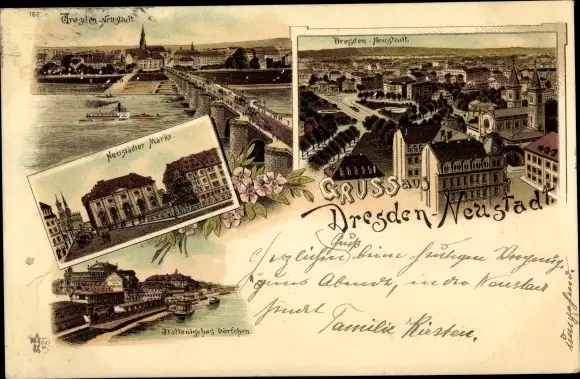 162.
Dresden-Neustadt.
Dresden-Neustadt.
Neustädter Markt.
GRUSS aus
Dresden-Neustadt
Italienisches Dörfchen.
Gruß
Herzlichen beim heutigen
Abends, in der Neustadt
sendet
Familie Kirsten.